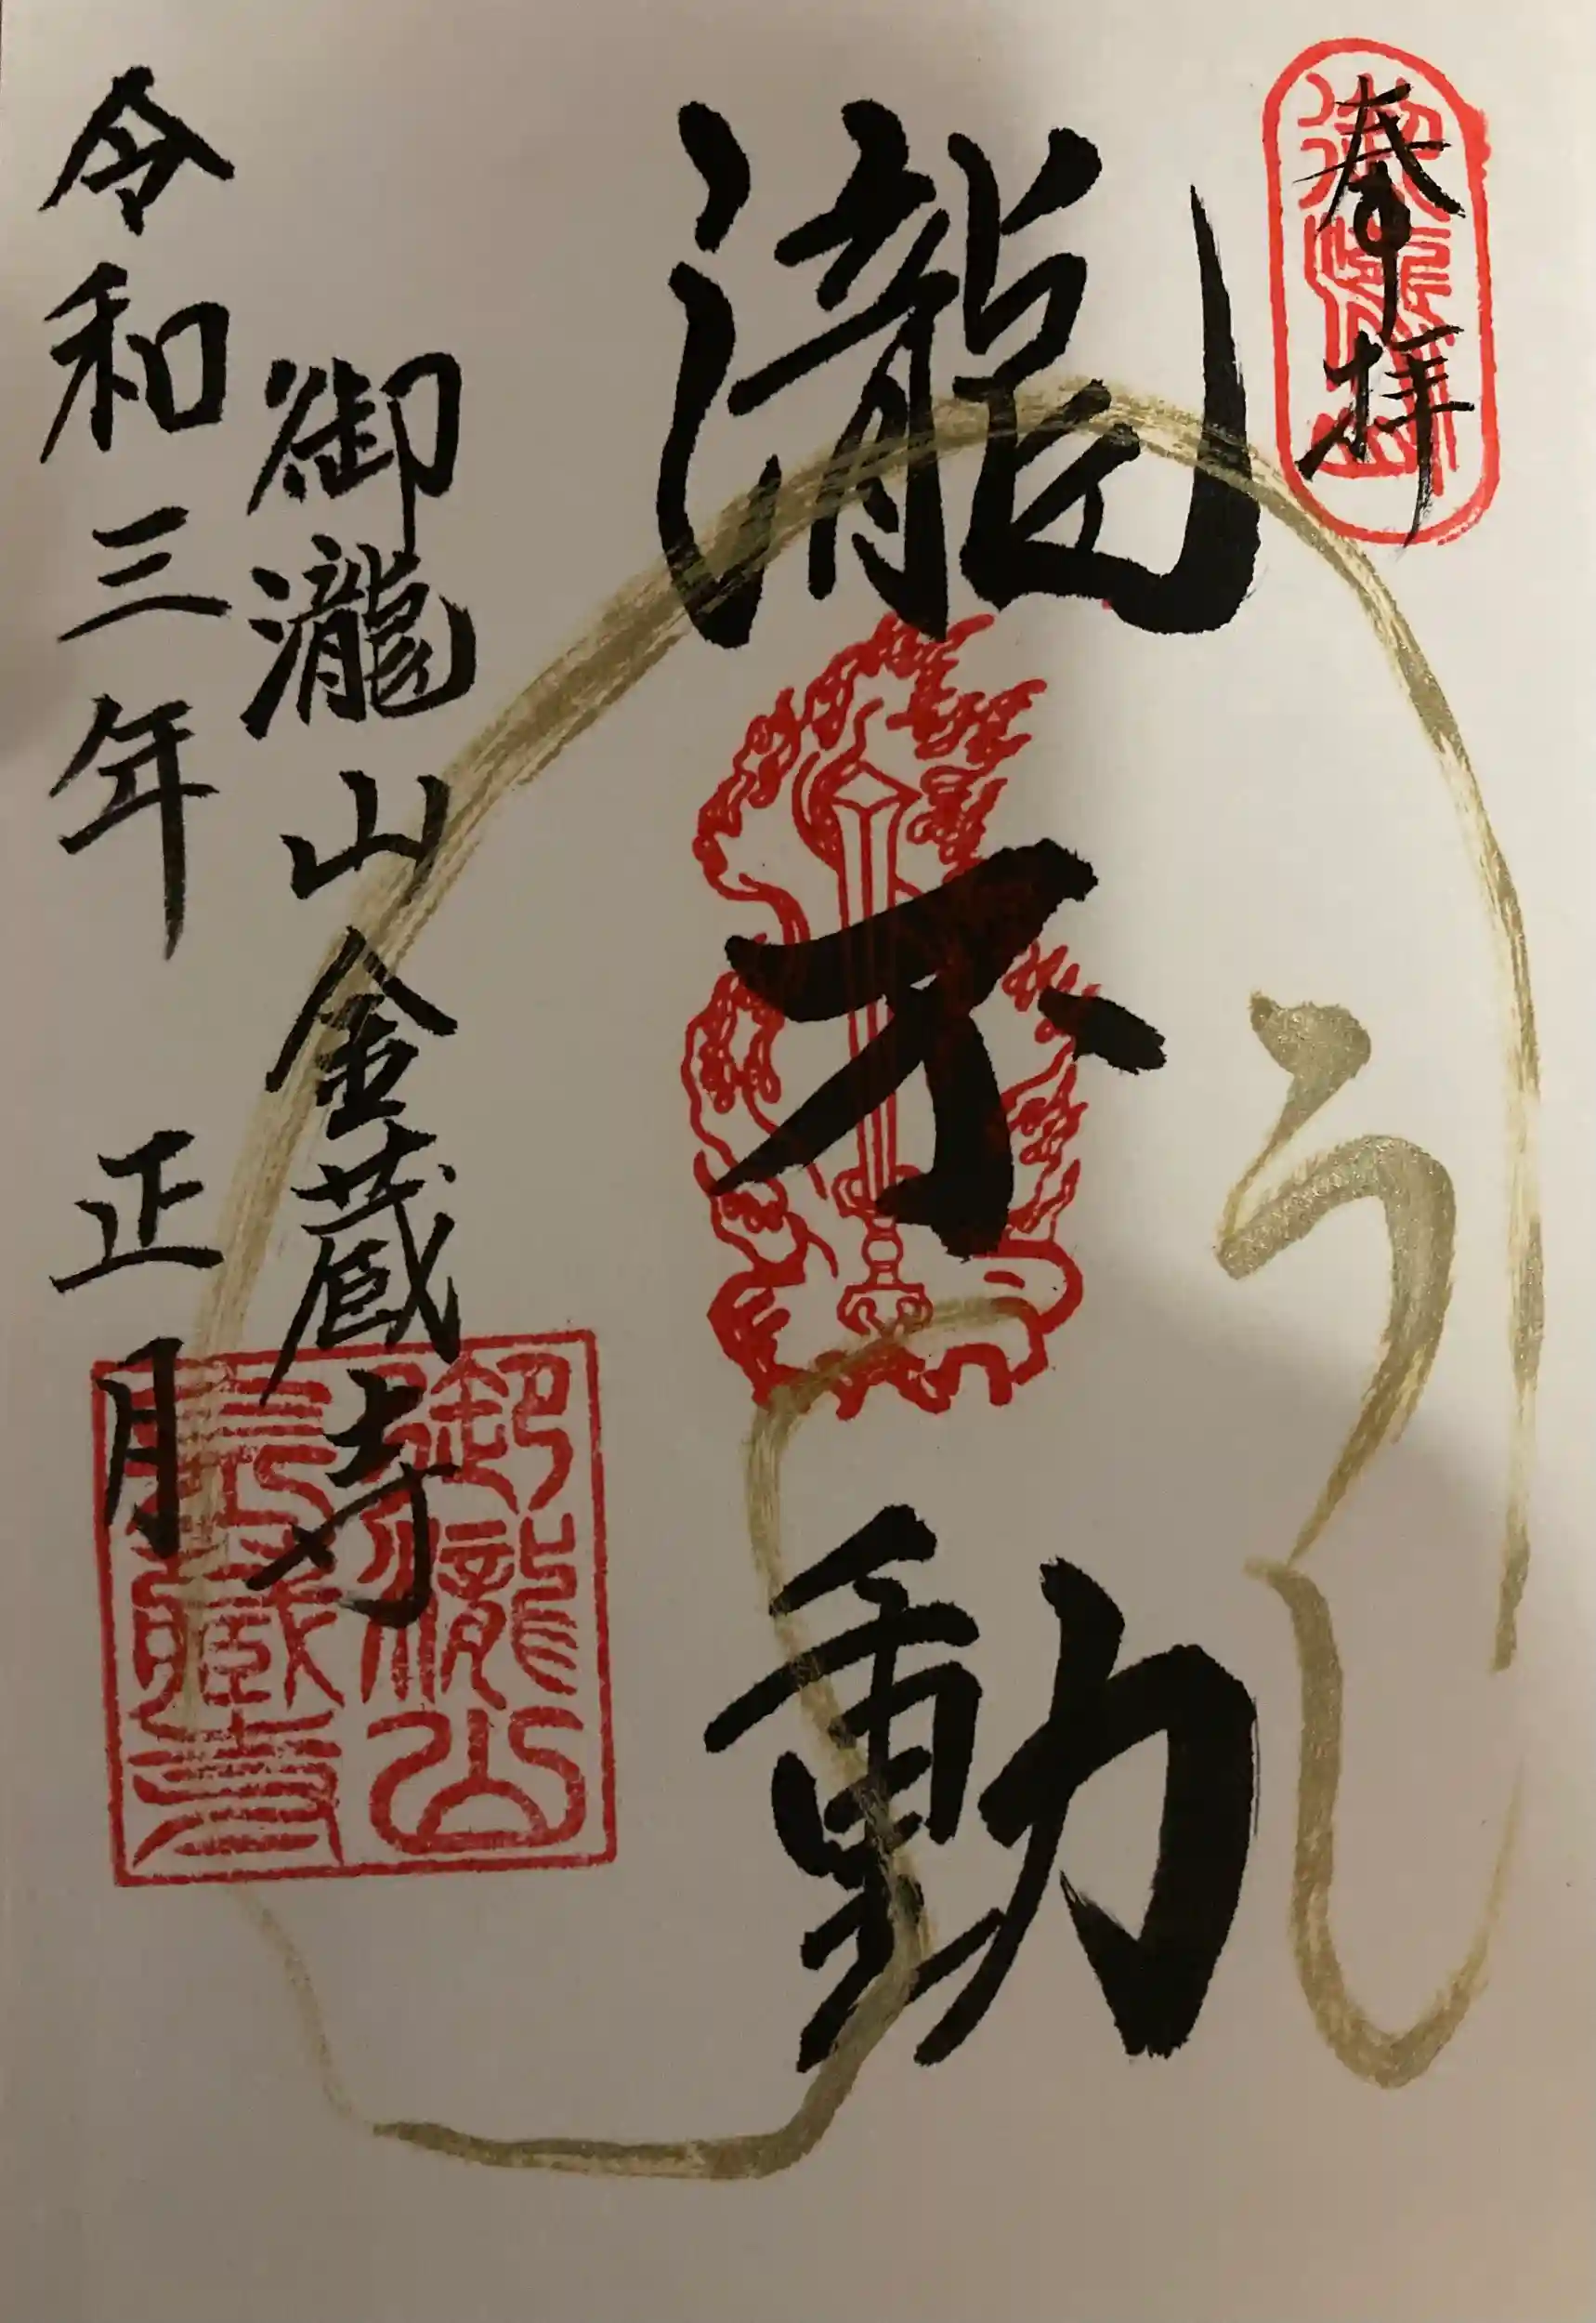 奉拝
瀧不動
御瀧山金蔵寺
令和三年 正月
御瀧山
金蔵寺